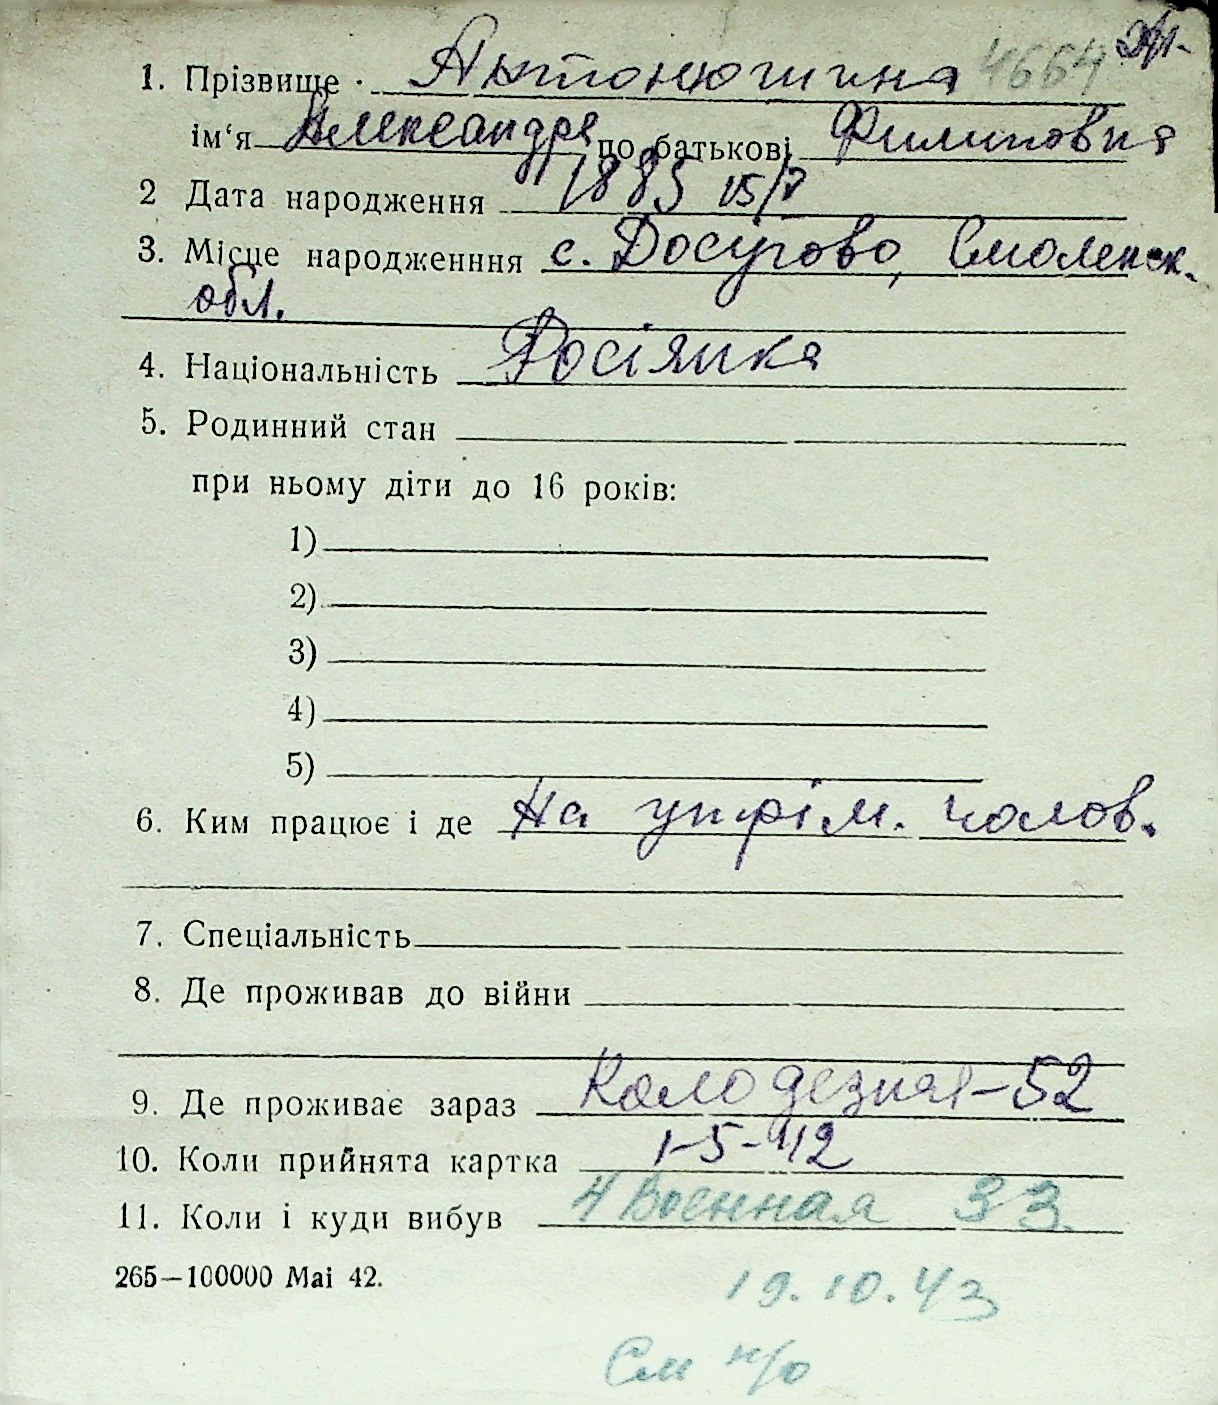 1. Прізвище Антонюшина 4664
ім‘я Александра по батькові Филиповна
2 Дата народження 1885 15/7
3. Місце народженння с. Досугово, Смоленск.
обл.
4. Національність Росіянка
5. Родинний стан
при ньому діти до 16 років:
1)
2)
3)
4)
5)
6. Ким працює і де На утрім. чолов.
7. Спеціальність
8. Де проживав до війни
9. Де проживає зараз Колодезная-52
10. Коли прийнята картка 1-5-42
11. Коли і куди вибув 4 Военная 33.
265—100000 Mai 42.
19.10.43
См н/о